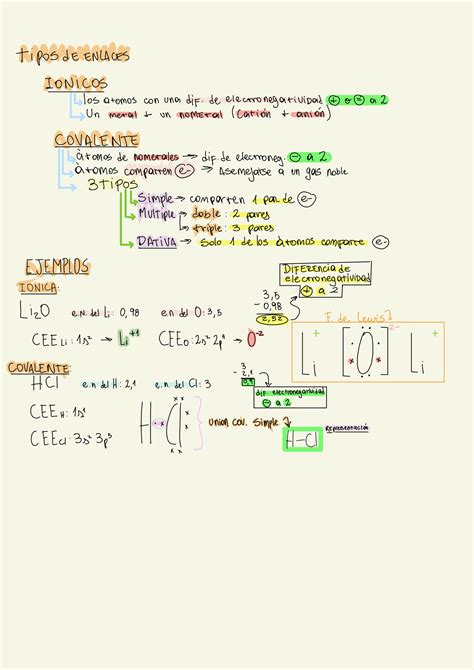 TIPOS DE ENLACES
IONICOS
los atomos con una dif. de electronegatividad + o = a 2
Un metal + un nometal (catión + anión)
COVALENTE
átomos de nometales → dif. de electroneg. - a 2
átomos comparten e- → Asemejarse a un gas noble
3 TIPOS
Simple → comparten 1 par de e-
Multiple → doble: 2 pares
triple: 3 pares
DATIVA → Solo 1 de los átomos comparte e-
EJEMPLOS
IONICA:
Li2O e.n. del Li: 0,98 e.n. del O: 3,5
3,5
- 0,98
2,52
DIFERENCIA de
electronegatividad
+ a 2
CEE Li: 1s¹ → Li+1 CEE O: 2s² 2p⁴ → O-2
F. de Lewis
Li + [O] 2- Li +
COVALENTE:
HCl e.n del H: 2,1 e.n del Cl: 3
3
- 2,1
0,9
dif. electronegatividad
- a 2
CEE H: 1s¹
CEE Cl: 3s² 3p⁵
H Cl
union cov. simple
H-Cl
Representación